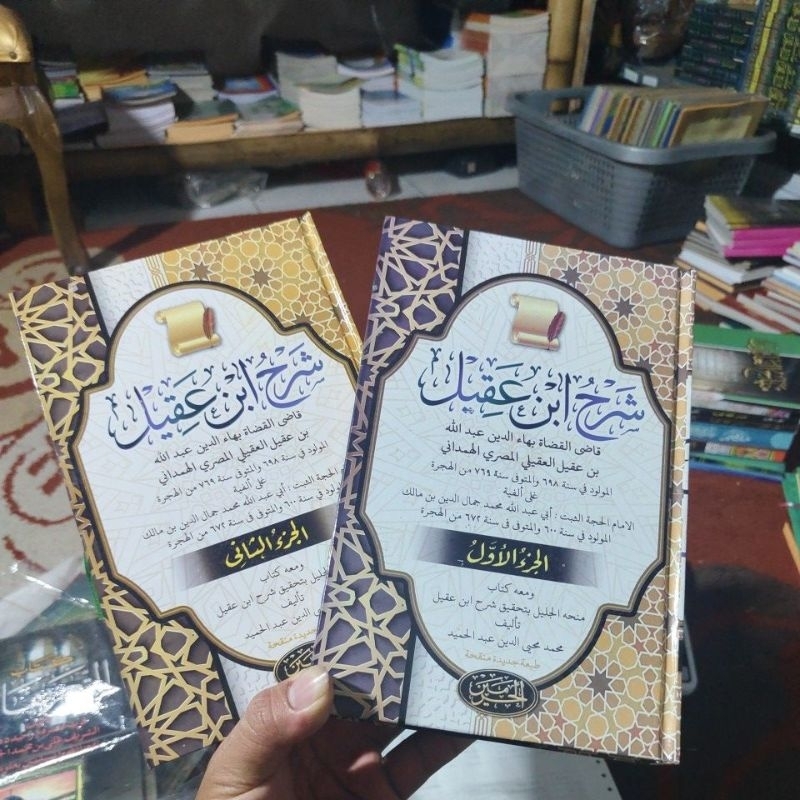 شَرْحُ ابْنِ عَقِيل
قاضى القضاة بهاء الدين عبد الله
بن عقيل العقيلي المصري الهمداني
المولود في سنة ٦٩٨ والمتوفى سنة ٧٦٩ من الهجرة
على ألفية
الحجة الثبت : أبي عبد الله محمد جمال الدين بن مالك
في سنة ٦٠٠ والمتوفى في سنة ٦٧٢ من الهجرة
الجزء الثانى
ومعه كتاب
الجليل بتحقيق شرح ابن عقيل
تأليف
الدين عبد الحميد
جديدة منقحة
شَرْحُ ابْنِ عَقِيل
قاضى القضاة بهاء الدين عبد الله
بن عقيل العقيلي المصري الهمداني
المولود في سنة ٦٩٨ والمتوفى سنة ٧٦٩ من الهجرة
على ألفية
الامام الحجة الثبت : أبي عبد الله محمد جمال الدين بن مالك
المولود في سنة ٦٠٠ والمتوفى في سنة ٦٧٢ من الهجرة
الجزء الأوّل
ومعه كتاب
منحه الجليل بتحقيق شرح ابن عقيل
تأليف
محمد محيي الدين عبد الحميد
طبعة جديدة منقحة
الحرمين